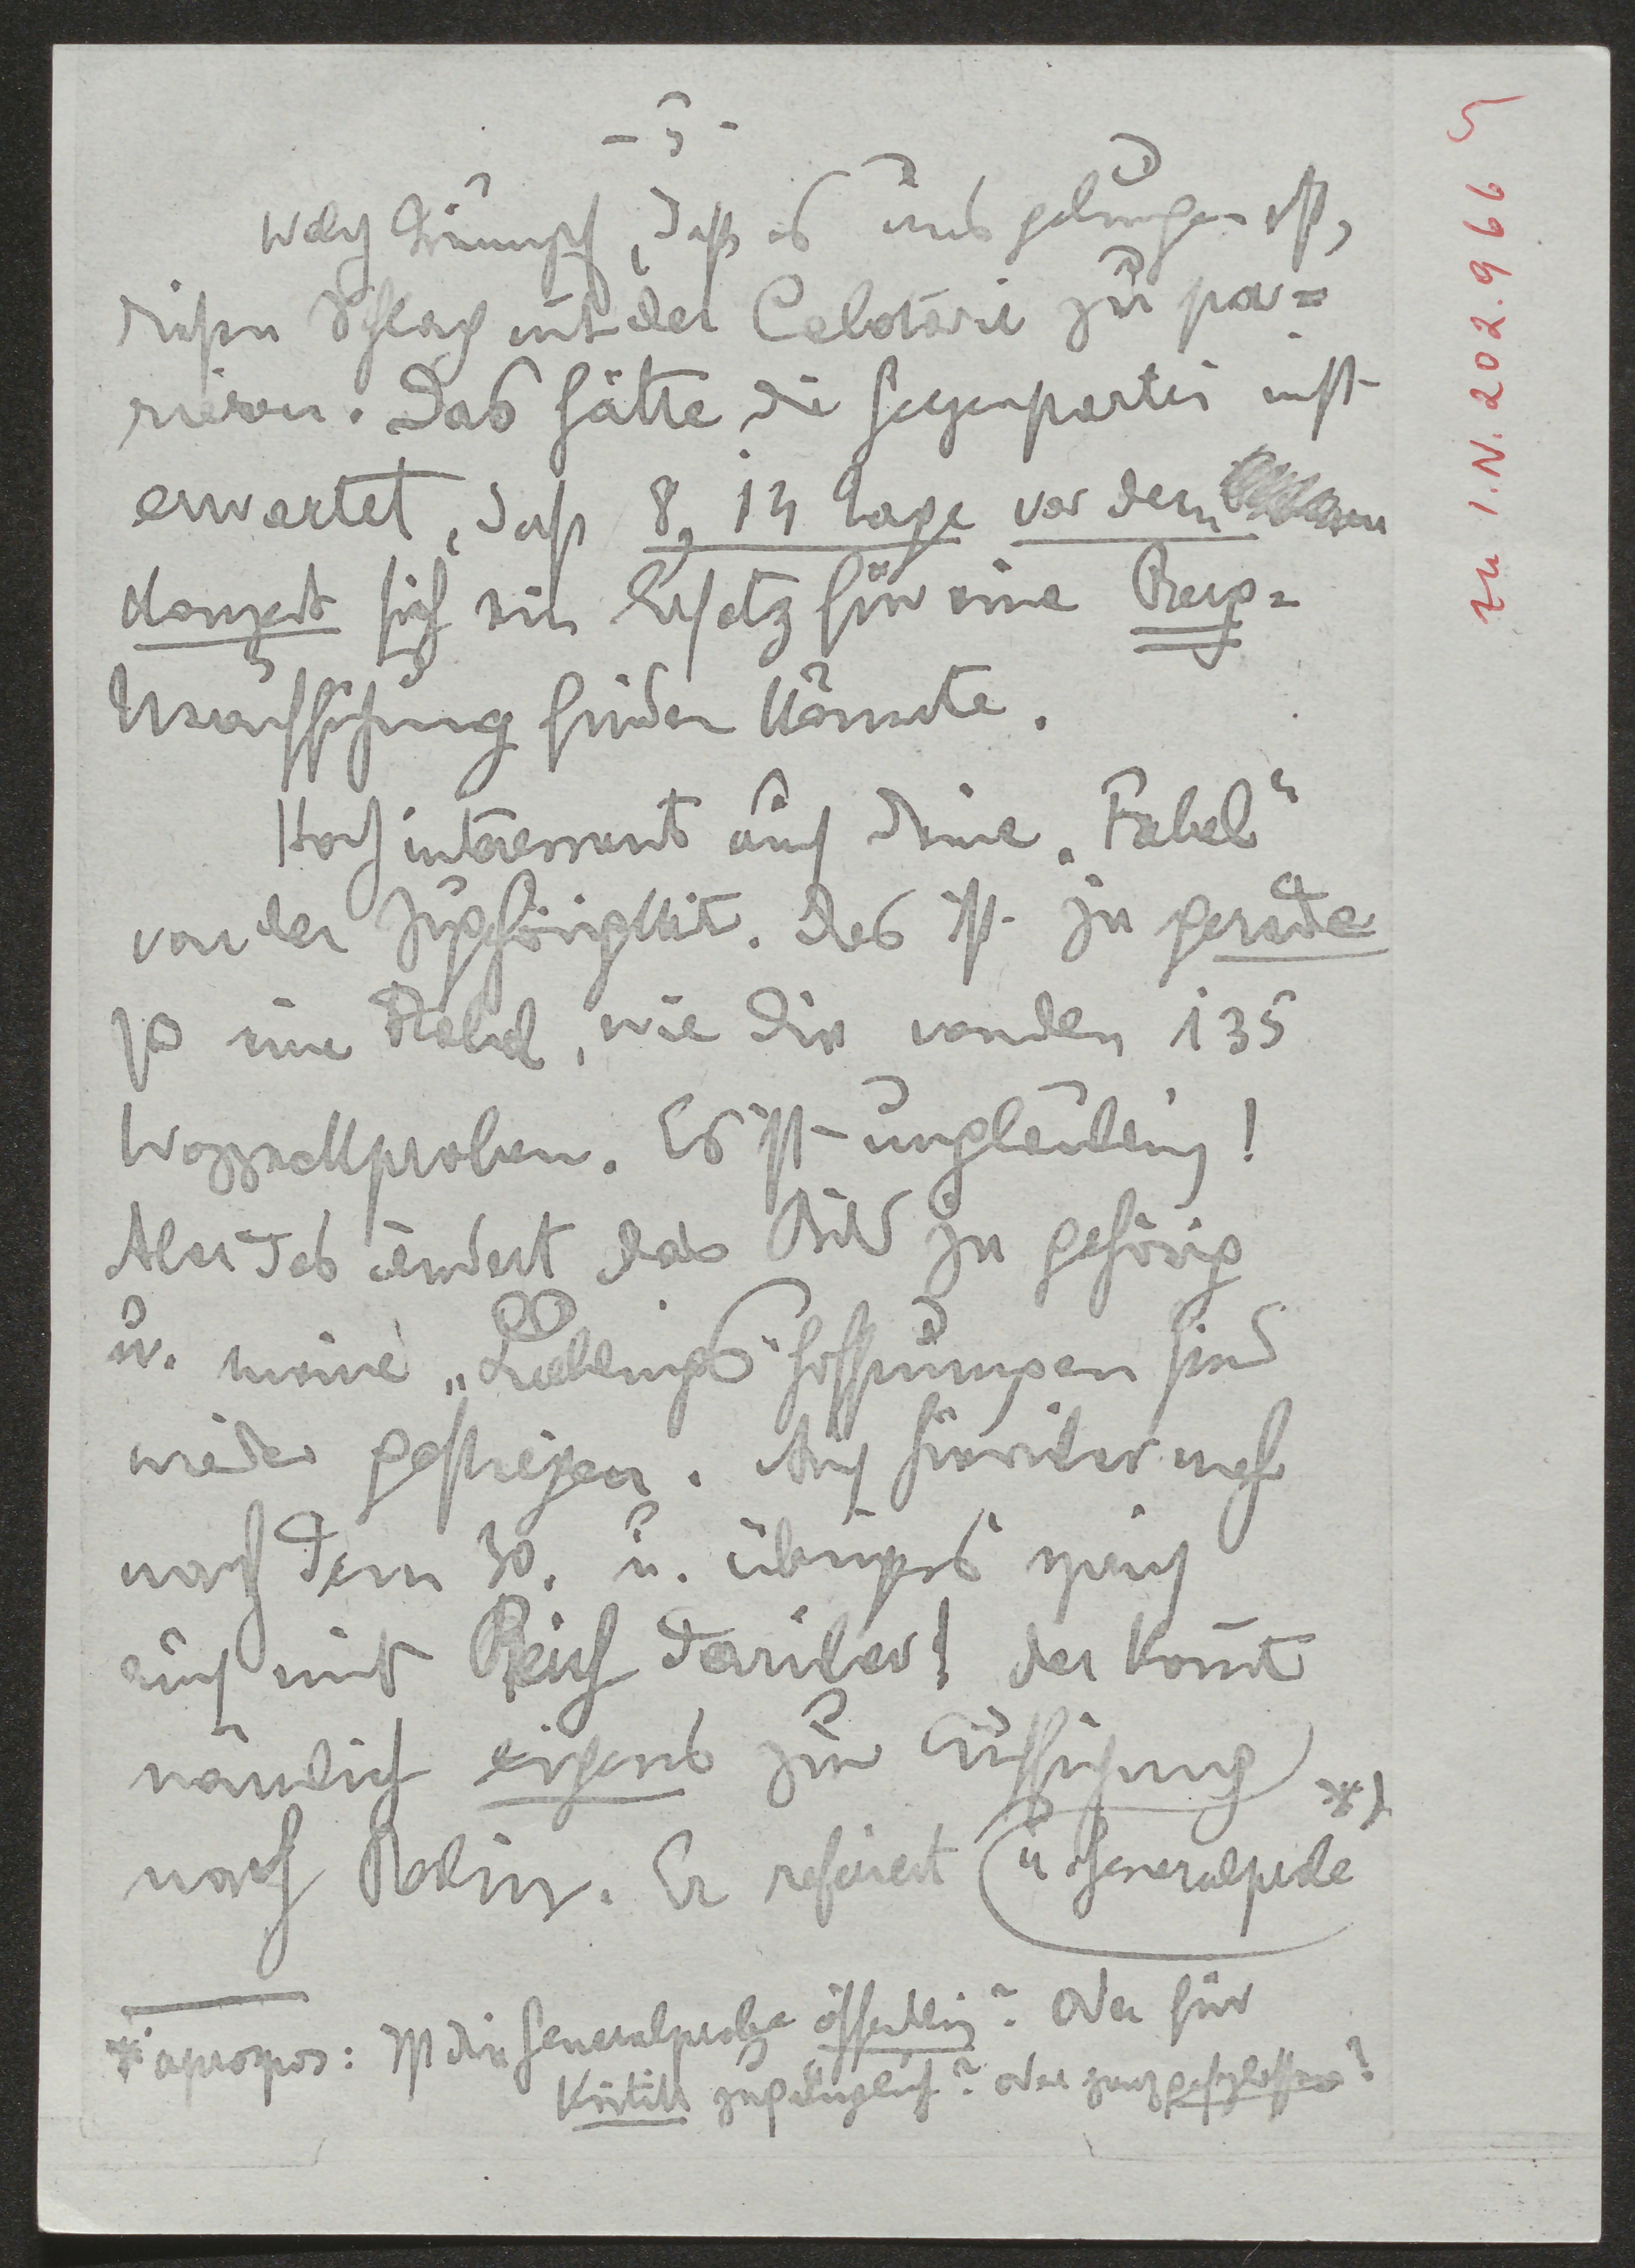 - 5 -
Welch Triumpf, daß es uns gelungen ist,
diesen Schlag mit der Celotärie zu par=
rieren. Das hätte die Gegenpartei nicht
erwartet, daß 8, 14 Tage vor dem
Konzert sich ein Ersatz für eine Berg=
Uraufführung finden könnte.
Hochinteressant auch Deine „Fabel"
von der Zugehörigkeit. Das ist ja gerade
so eine Fabel, wie die von den 135
Wozzeckproben. Es ist unglaublich!
Aber das ändert das Bild ja gehörig
u. meine „Lieblings"hoffnungen sind
wieder gestiegen. Auch hierüber mehr
nach dem 30. u. übrigens sprich
auch mit Reich darüber! Der kommt
nämlich eigens zur Aufführung
nach Berlin. Er referiert (u Generalprobe *)
*) apropos: Ist die Generalprobe öffentlich? Oder für
Kritik zugänglich? oder ganz geschlossen?
zu I.N. 202.966 5